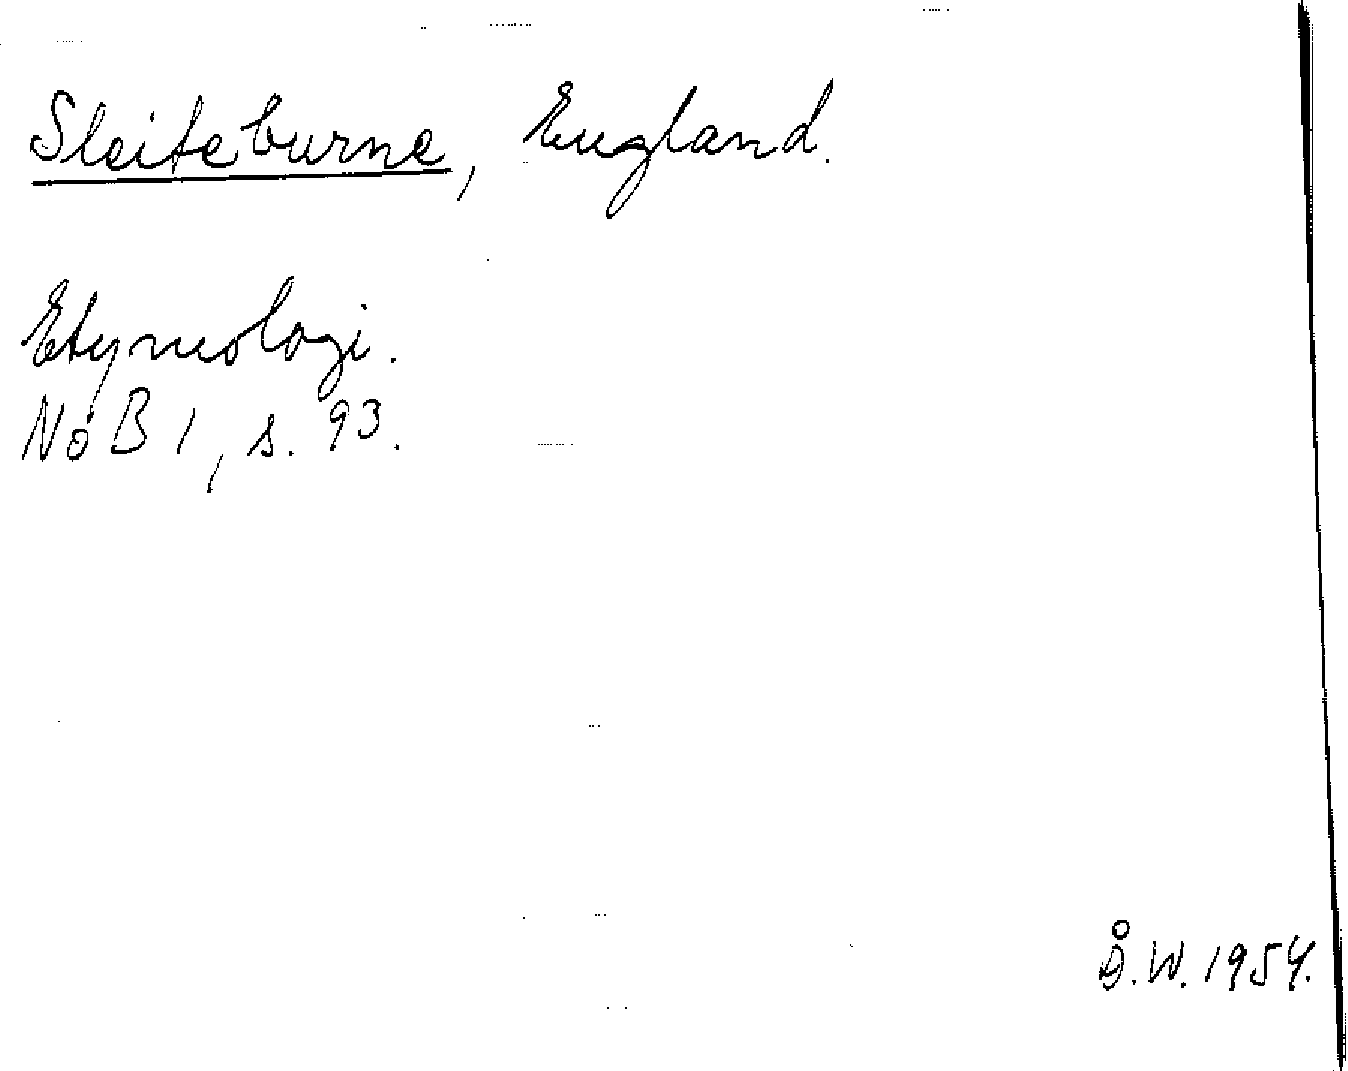 Sleiteburne, England.
Etymologi.
NoB 1, s. 93.
Å.W. 1954.